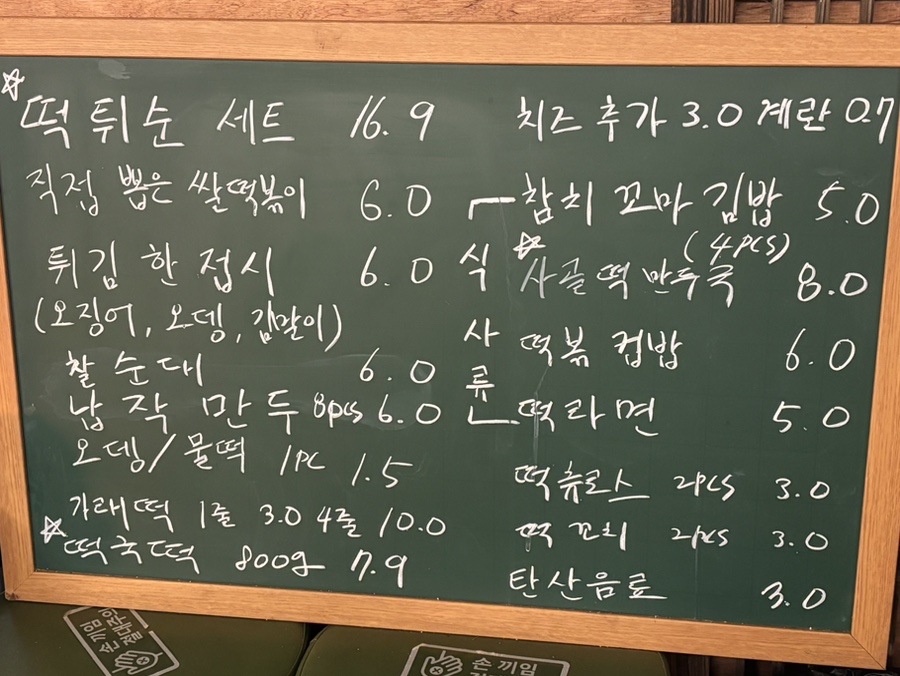 ☆
떡튀순 세트 16.9
직접 뽑은 쌀떡볶이 6.0
튀김 한 접시 6.0
(오징어, 오뎅, 김말이)
찰순대 6.0
납작만두 8pcs 6.0
오뎅/물떡 1PC 1.5
가래떡 1줄 3.0 4줄 10.0
☆떡국떡 800g 7.9
치즈 추가 3.0 계란 0.7
식사류
참치 꼬마 김밥 5.0
(4pcs)
☆사골떡만두국 8.0
떡볶 컵밥 6.0
떡라면 5.0
떡츄로스 2pcs 3.0
떡꼬치 2pcs 3.0
탄산음료 3.0
손끼임
손 끼임